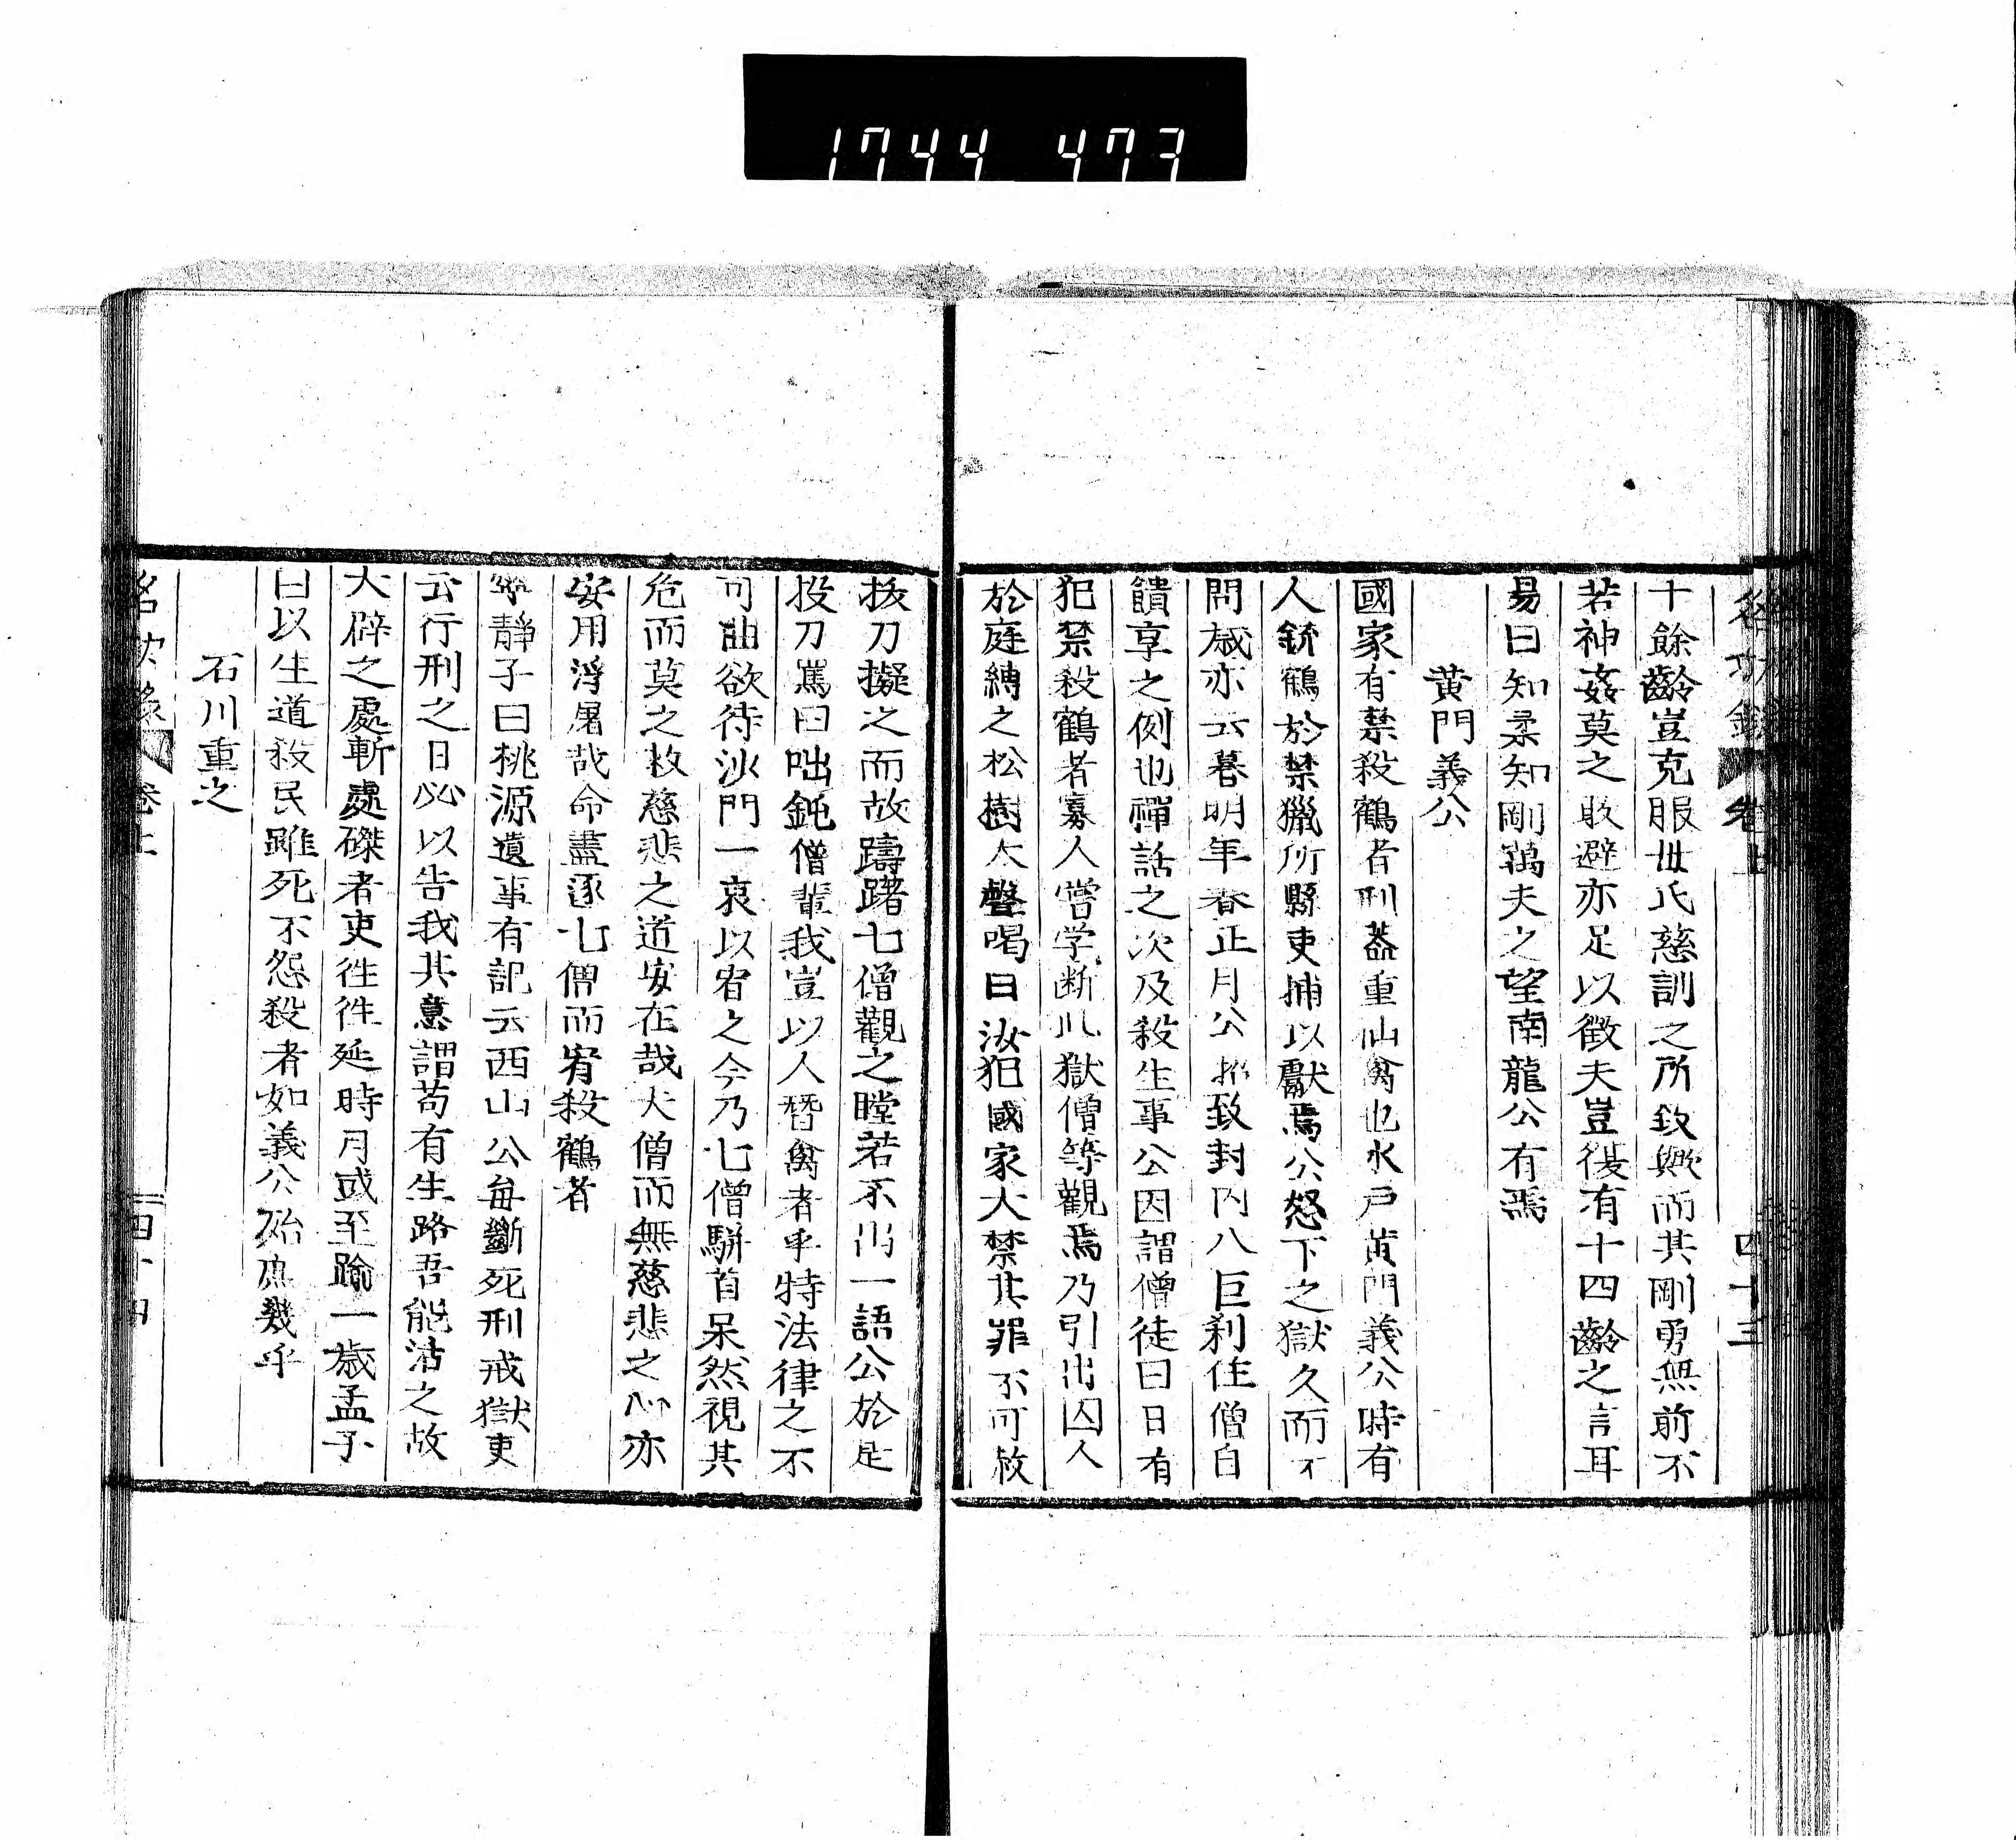 1744 473
十餘齡豈克服母氏慈訓之所致歟而其剛勇無前不
若神姦莫之敢避亦足以徵夫豈復有十四齡之言耳
易曰知柔知剛萬夫之望南龍公有焉
黄門義公
國家有禁殺鶴者刑葢重仙禽也水戸黄門義公時有
人銃鶴於禁獵所縣吏捕以獻焉公怒下之獄久而不
問歳亦云暮明年春正月公招致封内八巨刹住僧白
饋享之例也禪話之次及殺生事公因謂僧徒曰日有
犯禁殺鶴者寡人嘗学断此獄僧等觀焉乃引出囚人
於庭縛之松樹大聲喝曰汝犯國家大禁其罪不可赦
拔刀擬之而故躊躇七僧觀之瞠若不出一語公於是
投刀罵曰咄鈍僧輩我豈以人替禽者乎特法律之不
可曲欲待沙門一哀以宥之今乃七僧駢首呆然視其
危而莫之救慈悲之道安在哉夫僧而無慈悲之心亦
安用浮屠哉命盡逐七僧而宥殺鶴者
寧靜子曰桃源遺事有記云西山公毎斷死刑戒獄吏
云行刑之日必以告我其意謂苟有生路吾能活之故
大辟之處斬處磔者吏徃徃延時月或至踰一歳孟子
曰以生道殺民雖死不怨殺者如義公殆庶幾乎
石川重之